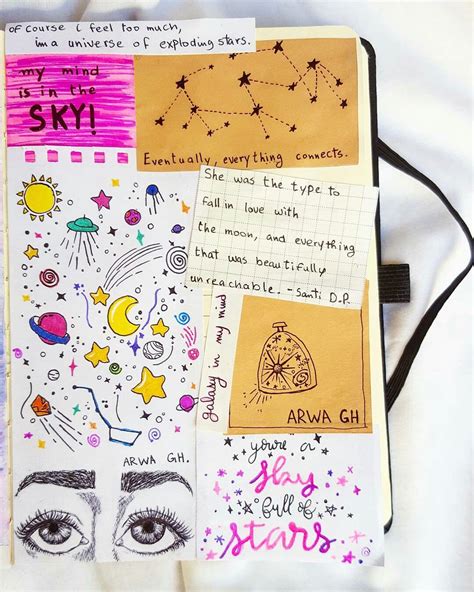 of course i feel too much,
im a universe of exploding stars.
my mind
is in the
SKY!
Eventually, everything connects.
She was the type to
fall in love with
the moon, and everything
that was beautifully
unreachable. -Santi D.P.
galaxy in my mind
ARWA GH
ARWA GH.
you're a
sky
full of
stars